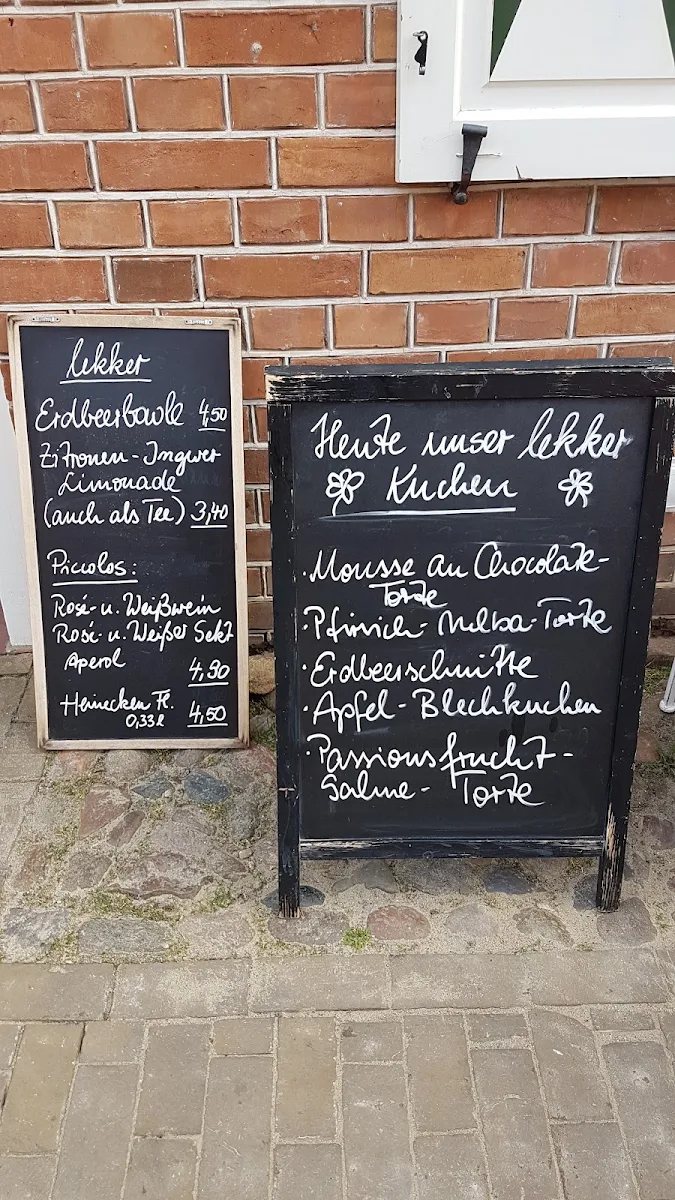 lekker
Erdbeerbowle 4,50
Zitronen-Ingwer
Limonade
(auch als Tee) 3,40
Piccolos:
Rosé- u. Weißwein
Rosé- u. Weißer Sekt
Aperol
4,90
Heinecken Fl.
0,33l 4,50
Heute unser lekker
Kuchen
·Mousse au Chocolate-
Torte
·Pfirsich-Melba-Torte
·Erdbeerschnitte
·Apfel-Blechkuchen
·Passionsfrucht-
Sahne-Torte